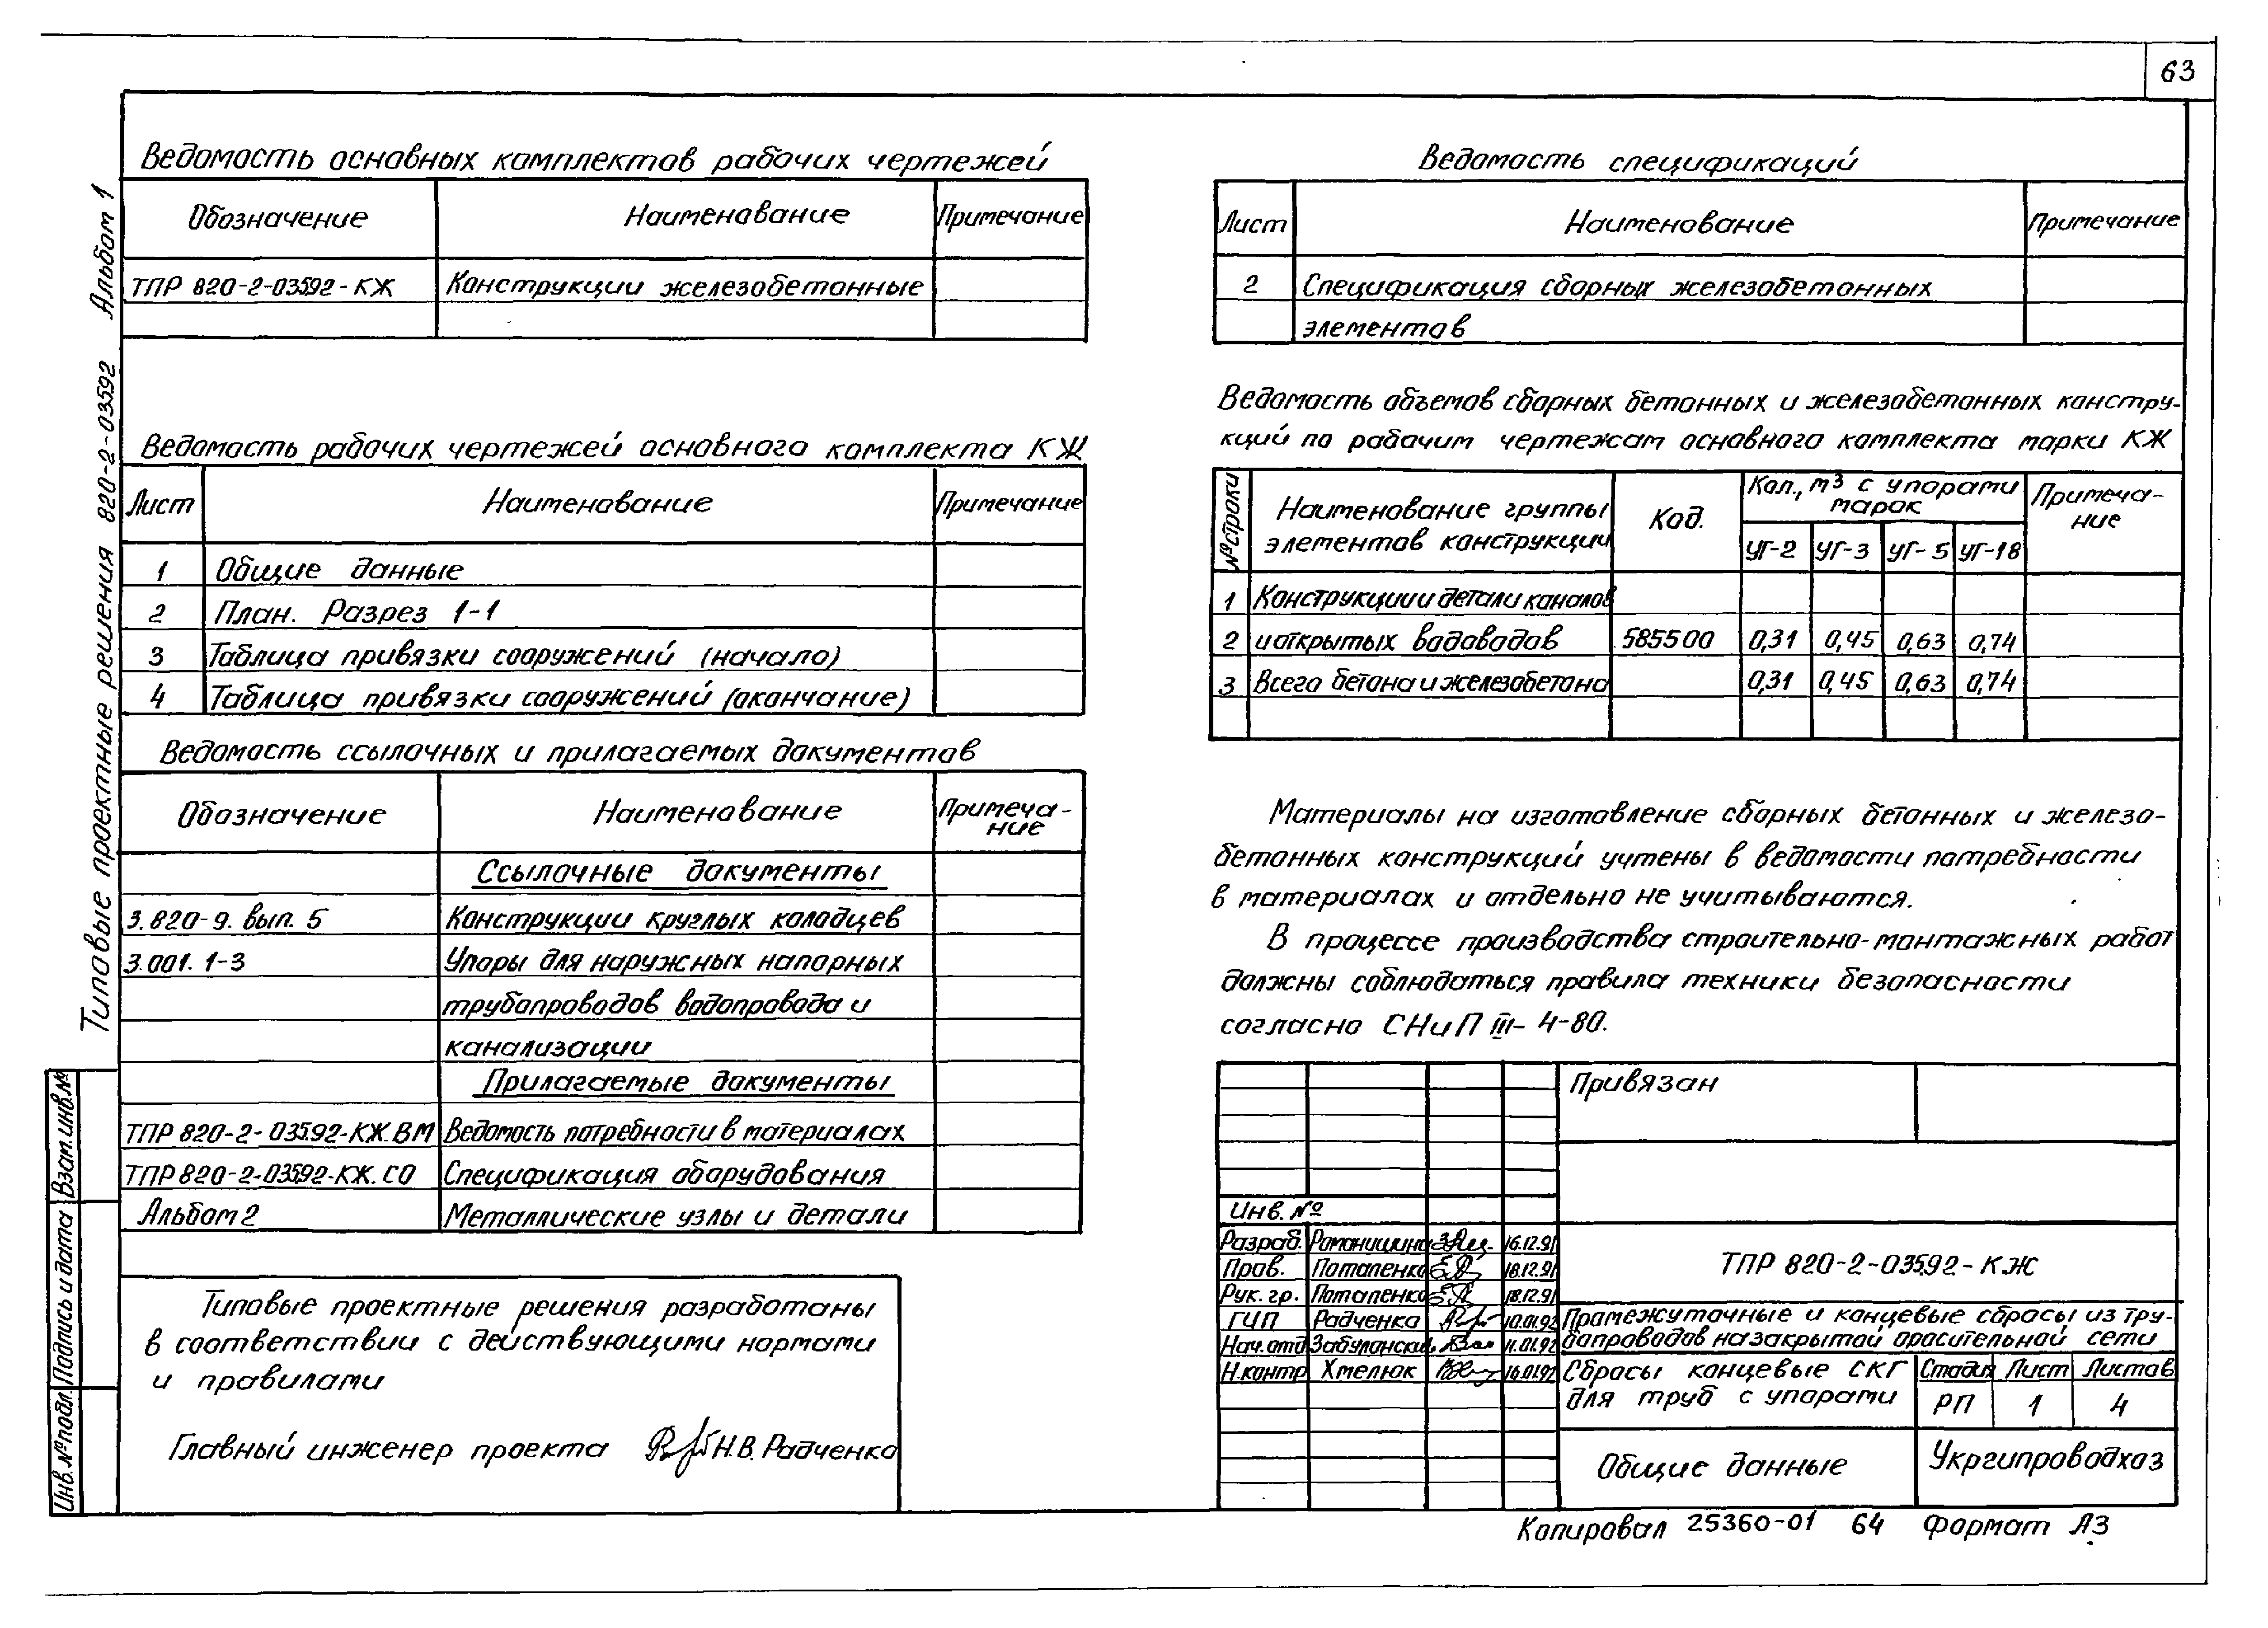 63
Альбом 1
Типовые проектные решения 820-2-03592
Ведомость основных комплектов рабочих чертежей
Обозначение Наименование Примечание
ТПР 820-2-03592-КЖ Конструкции железобетонные
Ведомость рабочих чертежей основного комплекта КЖ
Лист Наименование Примечание
1 Общие данные
2 План. Разрез 1-1
3 Таблица привязки сооружений (начало)
4 Таблица привязки сооружений (окончание)
Ведомость ссылочных и прилагаемых документов
Обозначение Наименование Примеча-
ние
Ссылочные документы
3.820-9. вып. 5 Конструкции круглых колодцев
3.001.1-3 Упоры для наружных напорных
трубопроводов водопровода и
канализации
Прилагаемые документы
ТПР 820-2-03592-КЖ.ВМ Ведомость потребности в материалах
ТПР 820-2-03592-КЖ.СО Спецификация оборудования
Альбом 2 Металлические узлы и детали
Типовые проектные решения разработаны
в соответствии с действующими нормами
и правилами
Главный инженер проекта Н.В. Радченко
Взам. инв. №
Подпись и дата
Инв. № подл.
Ведомость спецификаций
Лист Наименование Примечание
2 Спецификация сборных железобетонных
элементов
Ведомость объемов сборных бетонных и железобетонных констру-
кций по рабочим чертежам основного комплекта марки КЖ
№ строки Наименование группы элементов конструкции Код. Кол., м3 с упорами марок Примеча-
ние
УГ-2 УГ-3 УГ-5 УГ-18
1 Конструкции и детали каналов
2 и открытых водоводов 585500 0,31 0,45 0,63 0,74
3 Всего бетона и железобетона 0,31 0,45 0,63 0,74
Материалы на изготовление сборных бетонных и железо-
бетонных конструкций учтены в ведомости потребности
в материалах и отдельно не учитываются.
В процессе производства строительно-монтажных работ
должны соблюдаться правила техники безопасности
согласно СНиП III-4-80.
Привязан
Инв. №
Разраб. Романишина 16.12.91
Пров. Потапенко 18.12.91
Рук. гр. Потапенко 18.12.91
ГИП Радченко 10.01.92
Нач. отд Забуланский 11.01.92
Н.контр Хмелюк 16.01.92
ТПР 820-2-03592-КЖ
Промежуточные и концевые сбросы из тру-
бопроводов на закрытой оросительной сети
Сбросы концевые СКГ
для труб с упорами
Стадия Лист Листов
РП 1 4
Общие данные
Укргипроводхоз
Копировал 25360-01 64 Формат А3